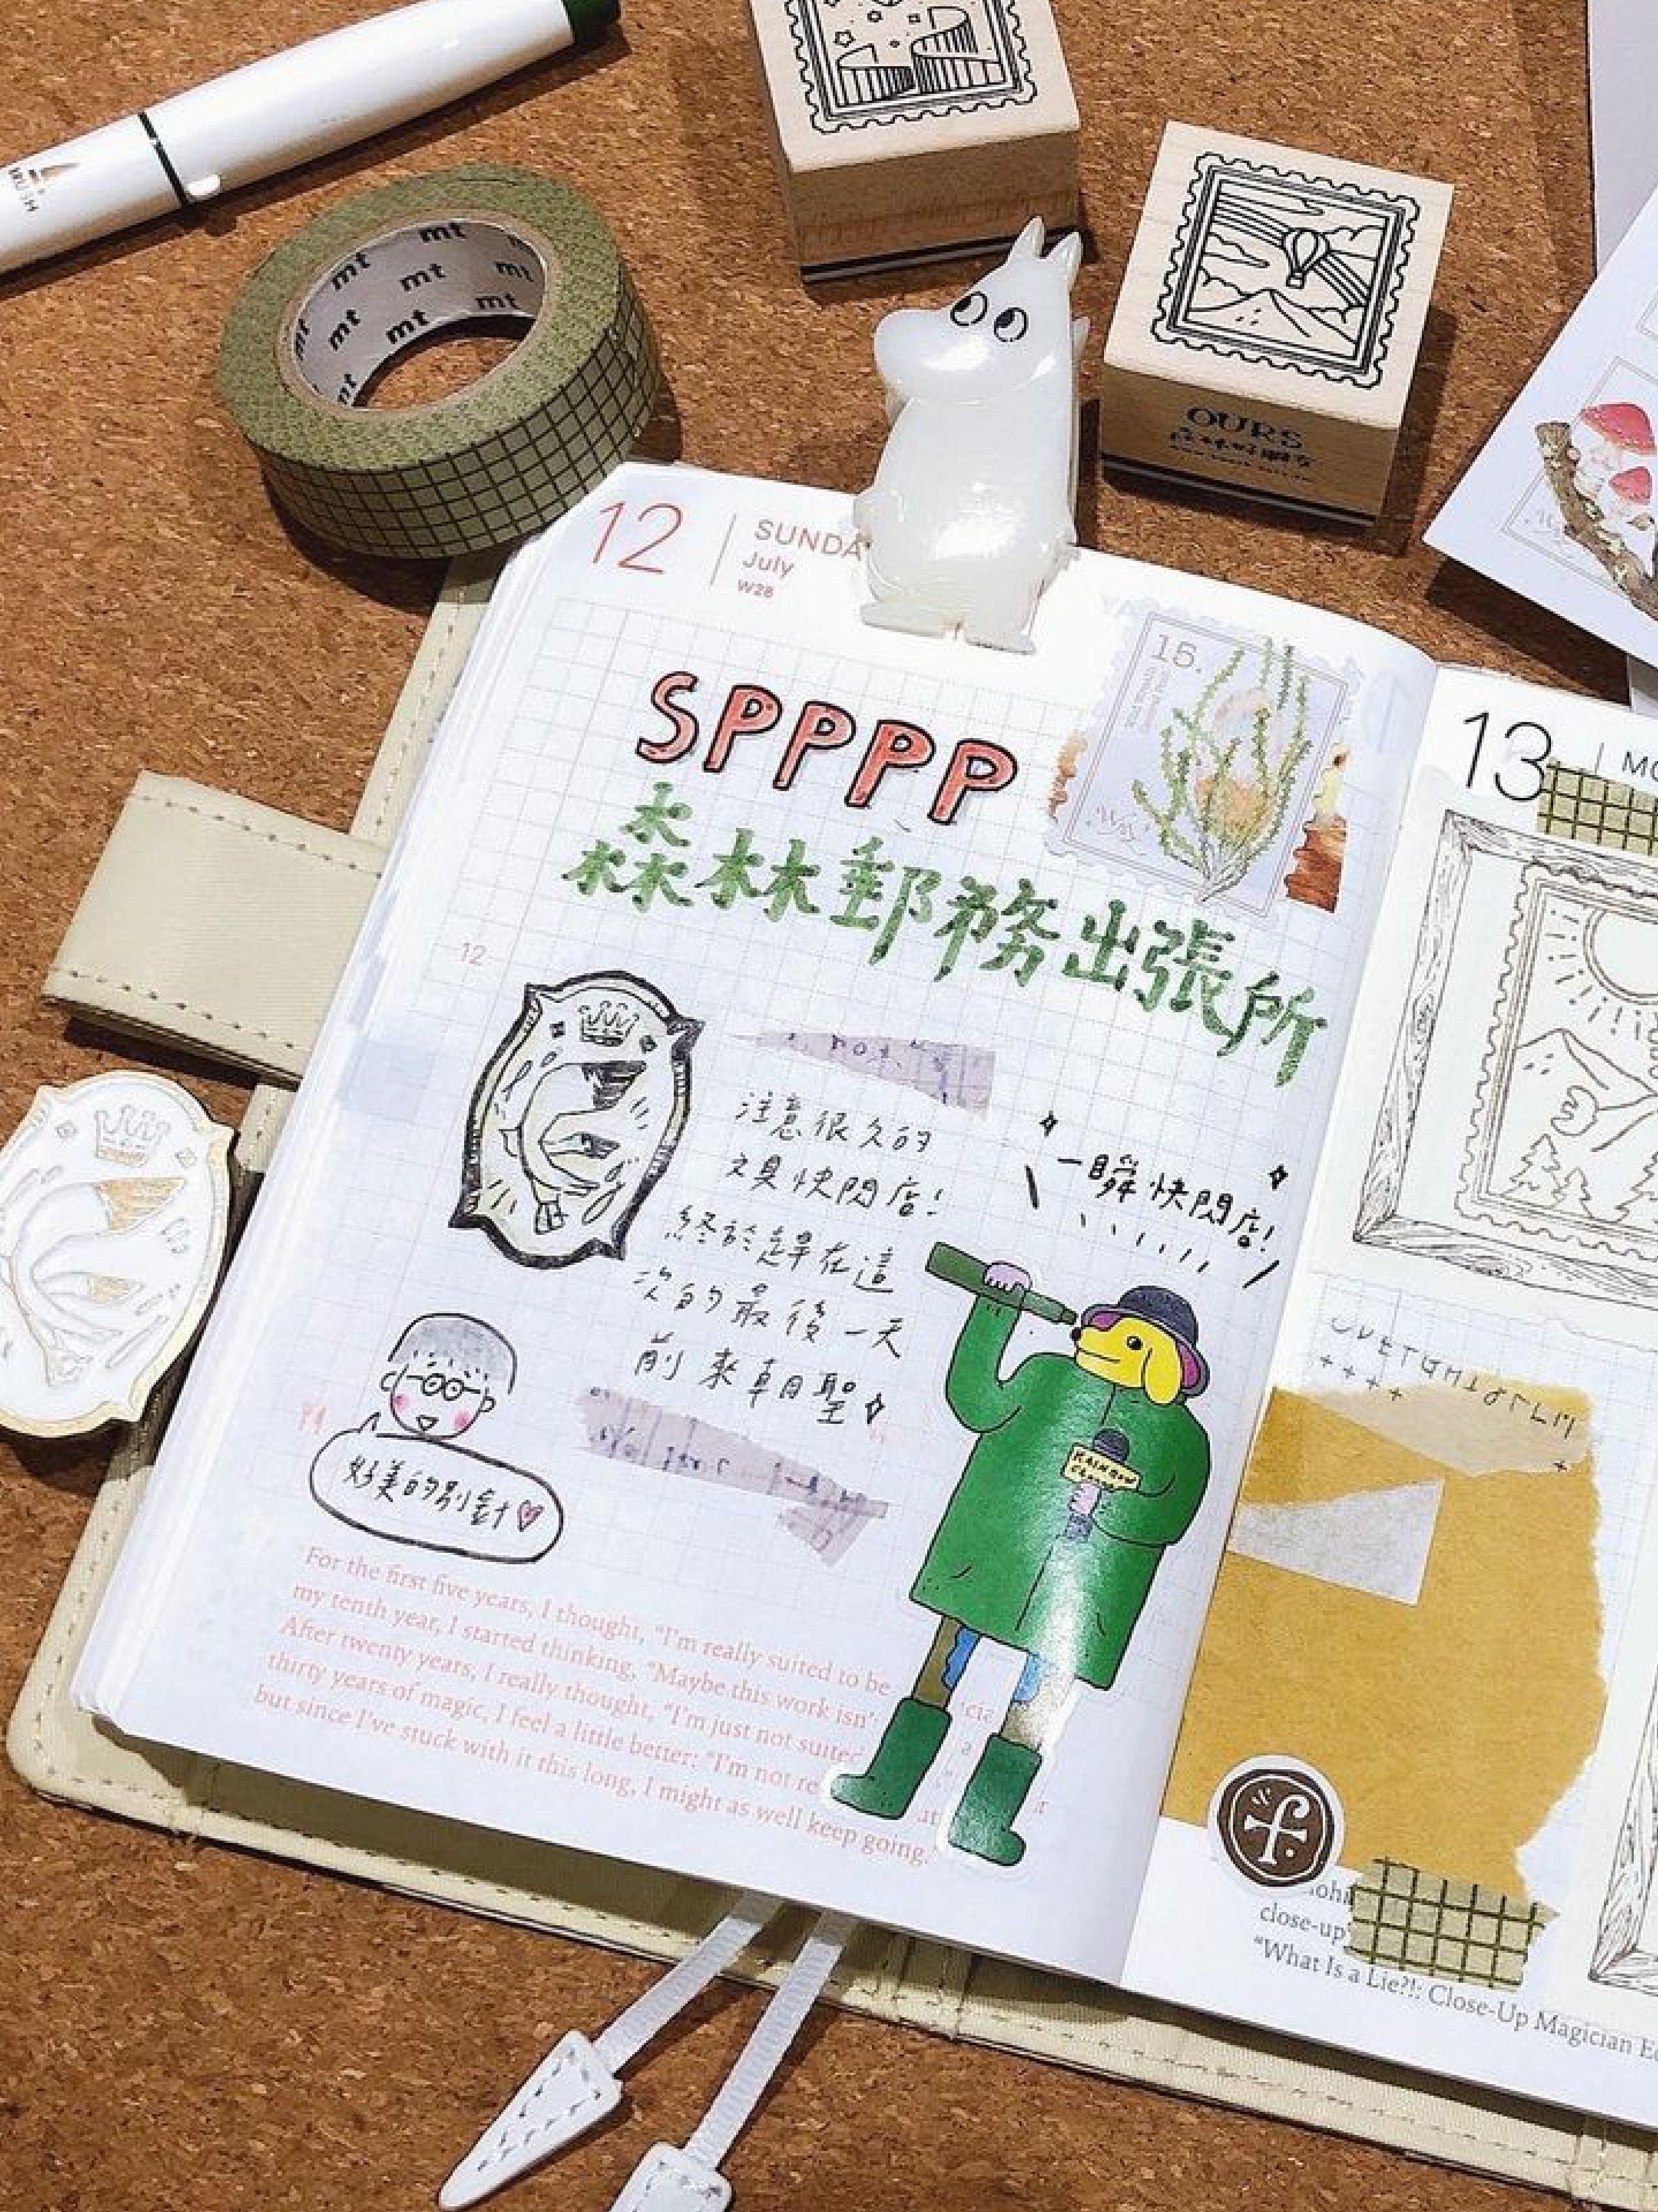 BRUSH
mt mt mt mt mt mt mt
OURS
森林好朋友
12
SUNDA
July
W28
15.
SPPPP
森林郵務出張所
12
注意很久的
文具快閃店!
終於趕在這
次的最後一天
前來朝聖
一瞬快閃店!
好美的別針
RAINBOW
For the first five years, I thought, “I'm really suited to be
my tenth year, I started thinking, “Maybe this work isn'
After twenty years, I really thought, “I'm just not suited
thirty years of magic, I feel a little better: “I'm not re
but since I've stuck with it this long, I might as well keep going.”
13
MO
f.
close-up
“What Is a Lie?!: Close-Up Magician Ed